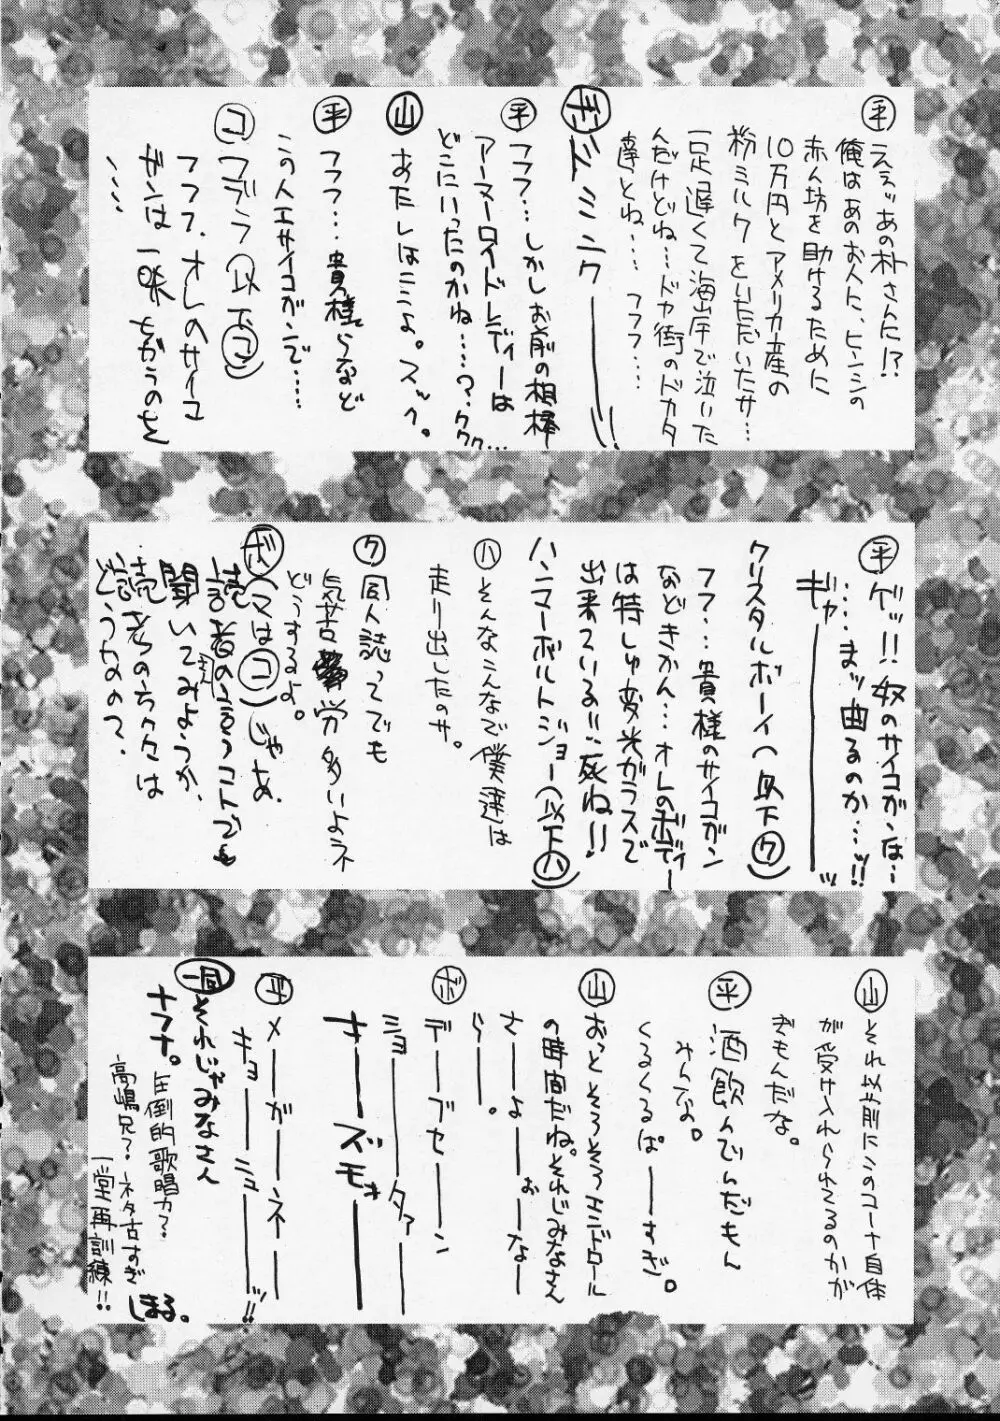 ㊥ えぇッあの朴さんに!?
俺はあのお人に、ヒンシの
赤ん坊を助けるために
10万円とアメリカ産の
粉ミルクをいただいたサ…
一足遅くて海岸で泣いた
んだけどね…ドヤ街のドカタ
達とね… フフフ…
ボ ドミニクーーーッ!!
平 フフフ…しかしお前の相棒
アーマーロイドレディーは
どこにいったのかね……?ククク…
山 あたしはここよ。スッ。
平 フフフ…貴様らなど
この人工サイコガンで……
コブラ(以下コ)
フフフ、オレのサイコ
ガンは一味ちがうのさ
、、、、
平 ゲッ!!奴のサイコガンは…
…まッ曲るのか…!!
ギャーーーーッ
クリスタルボーイ(以下ク)
フフ…貴様のサイコガン
などきかん…オレのボディー
は特しゅ変光ガラスで
出来ている!!死ね!!
ハンマーボルトジョー(以下ハ)
ハ そんなこんなで僕達は
走り出したのサ。
ク 同人誌ってでも
気苦労多いよネ
どうするよ。
ボ(マはコ)じゃあ、
読者の言うコトでも
聞いてみようか、
読者のちみは
どうなの?
山 それ以前にこのコーナ自体
が受け入れられてるのかが
ぎもんだな。
平 酒飲んでんだもん
みんな。
くるくるぱーーすぎ。
山 おっとそろそろエンドロール
の時間だね。それじみなさん
さーよーぉーなー
らー。
ボ デーブセーン
ショーータァーー
さーーズモォーー
平 メーガーネー
キョーーシューーッ!!
一同 それじゃみなさん
ナフナ。
圧倒的歌唱力?
高嶋兄?ネタ古すぎ
一堂再訓練!!
しまる。